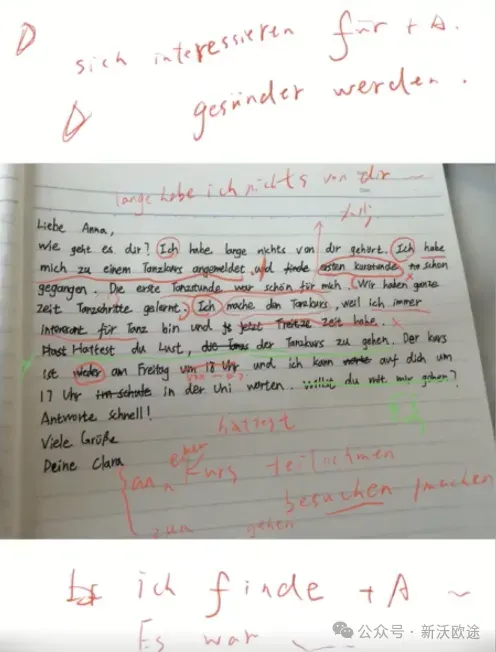 sich interessieren für + A.
gesünder werden.
lange habe ich nichts von dir
Liebe Anna,
wie geht es dir? Ich habe lange nichts von dir gehört. Ich habe
mich zu einem Tanzkurs angemeldet, und finde ersten kursstunde schon
gegangen. Die erste Tanzstunde war schön für mich. Wir haben ganze
zeit Tanzschritte gelernt. Ich mache den Tanzkurs, weil ich immer
interesant für Tanz bin und jetzt zeit habe.
Hast Hattest du Lust, der Tanzkurs zu gehen. Der kurs
ist wieder am Freitag um 18 Uhr und ich kann auf dich um
17 Uhr in der Uni warten. Willst du mit mir gehen?
Antworte schnell!
Viele Grüße
Deine Clara
hattest
an einen Kurs teilnehmen
besuchen / machen
zum gehen
ich finde + A
Es war
公众号·新沃欧途